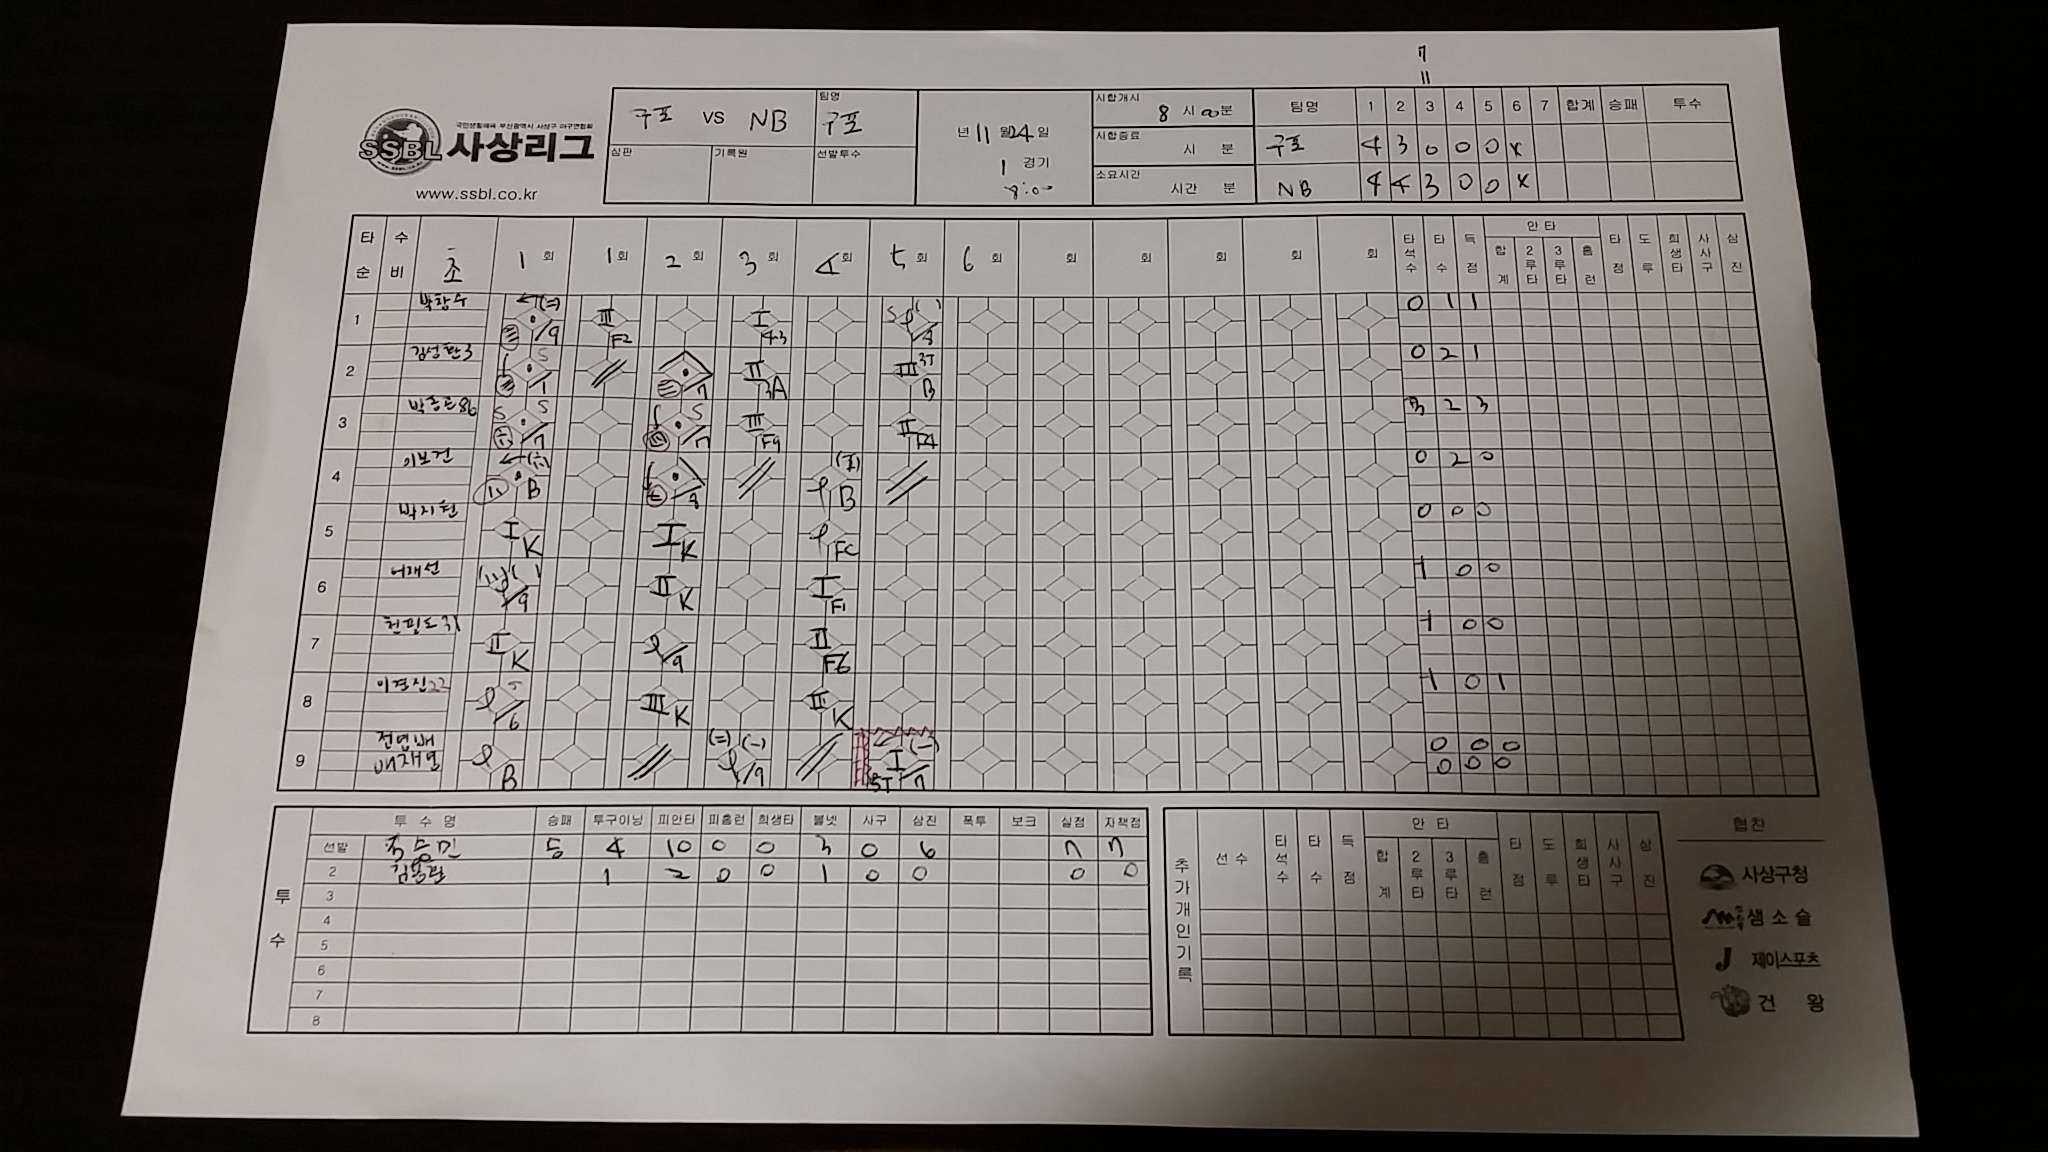 7
11
국민생활체육 부산광역시 사상구 야구연합회
SSBL 사상리그
www.ssbl.co.kr
구포 VS NB
팀명
구포
심판
기록원
선발투수
년 11월 24일
1 경기
8:00
시합개시
8 시 00분
시합종료
시 분
소요시간
시간 분
팀명 1 2 3 4 5 6 7 합계 승패 투수
구포 4 3 0 0 0 x
NB 4 4 3 0 0 x
타순 수비 초 1회 1회 2회 3회 4회 5회 6회 회 회 회 회 회 타석수 타수 득점 안타 합계 2루타 3루타 홈런 타점 도루 희생타 사사구 삼진
1 박창수 /9 III F2 I 4-3 S 0 1 1
2 S /1 /7 II 3A III 3T B 0 2 1
3 S S /7 S /7 III F9 II F4 3 2 3
4 이보건 B B 0 2 0
5 I K I K FC 0 0 0
6 /9 II K I F1 1 0 0
7 II K /9 II F6 1 0 0
8 /6 III K III K 1 0 1
9 B /9 I /7 0 0 0
0 0 0
투수
투수명 승패 투구이닝 피안타 피홈런 희생타 볼넷 사구 삼진 폭투 보크 실점 자책점
선발 4 10 0 0 3 0 6 7 7
2 1 2 0 0 1 0 0 0 0
3
4
5
6
7
8
추가개인기록
선수 타석수 타수 득점 안타 합계 2루타 3루타 홈런 타점 도루 희생타 사사구 삼진
협찬
사상구청
샘소슬
J 제이스포츠
건왕